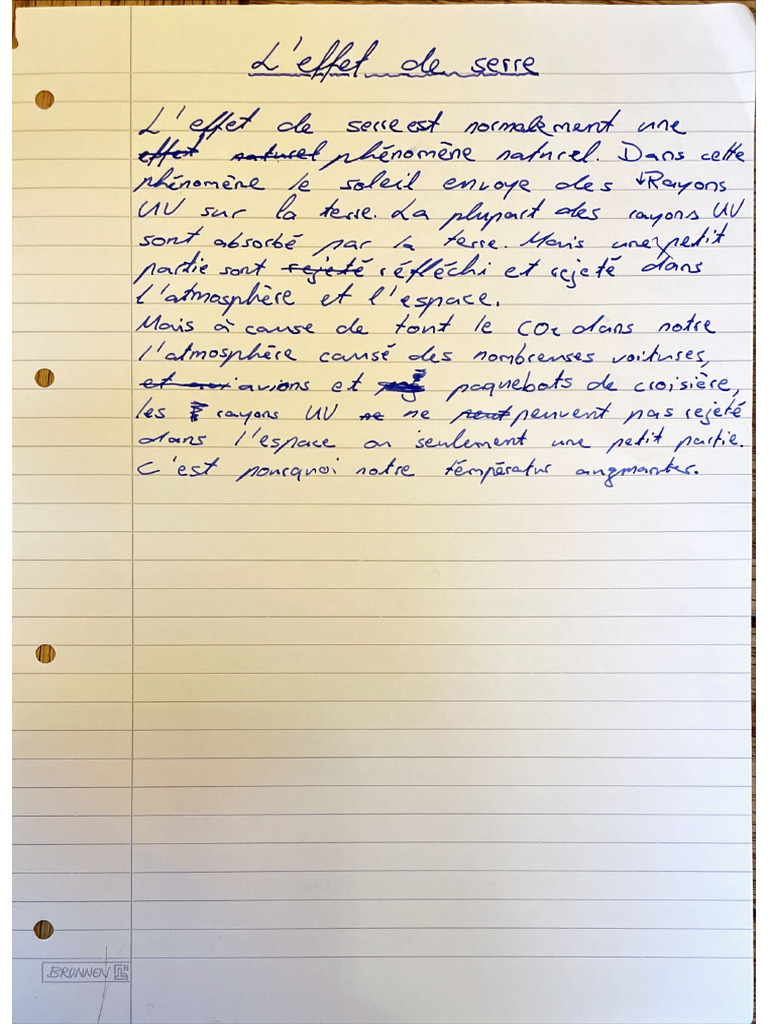 L'effet de serre
L'effet de serre est normalement une
effet naturel phénomène naturel. Dans cette
phénomène le soleil envoye des Rayons
UV sur la terre. La plupart des rayons UV
sont absorbé par la terre. Mais une petit
partie sont rejeté réfléchi et rejeté dans
l'atmosphère et l'espace.
Mais à cause de tout le CO₂ dans notre
l'atmosphère causé des nombreuses voitures,
et aux avions et paquebots de croisière,
les rayons UV ne ne peut peuvent pas rejeté
dans l'espace ou seulement une petit partie.
C'est pourquoi notre température augmanter.
BRUNNEN